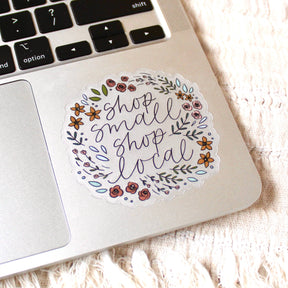 shift
control
option
shop
small
shop
local